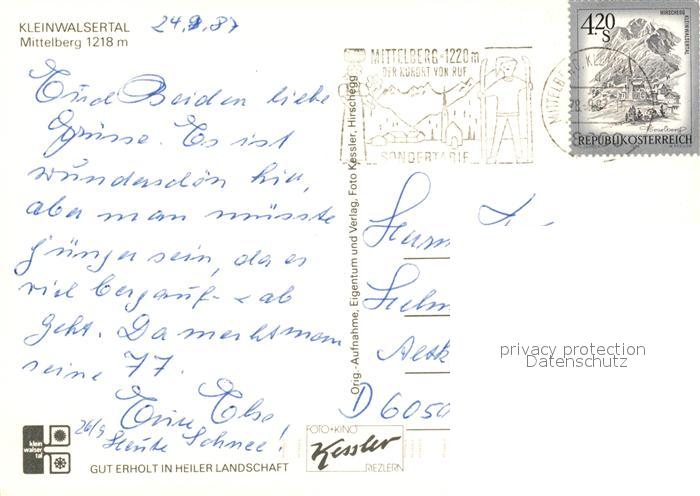 KLEINWALSERTAL 24.9.87
Mittelberg 1218 m
Euch Beiden liebe
Grüsse. Es ist
wunderschön hier,
aber man müsste
jünger sein, da es
viel bergauf- u ab
geht. Da merkt man
seine 77.
Eure Else
26/9 Heute Schnee!
klein
walser
tal
GUT ERHOLT IN HEILER LANDSCHAFT
Orig.-Aufnahme, Eigentum und Verlag, Foto Kessler, Hirschegg
FOTO+KINO
Kessler
RIEZLERN
MITTELBERG-1220m
DER KURORT VON RUF
4.20
S
HIRSCHEGG
KLEINWALSERTAL
REPUBLIK ÖSTERREICH
D 6050
privacy protection
Datenschutz